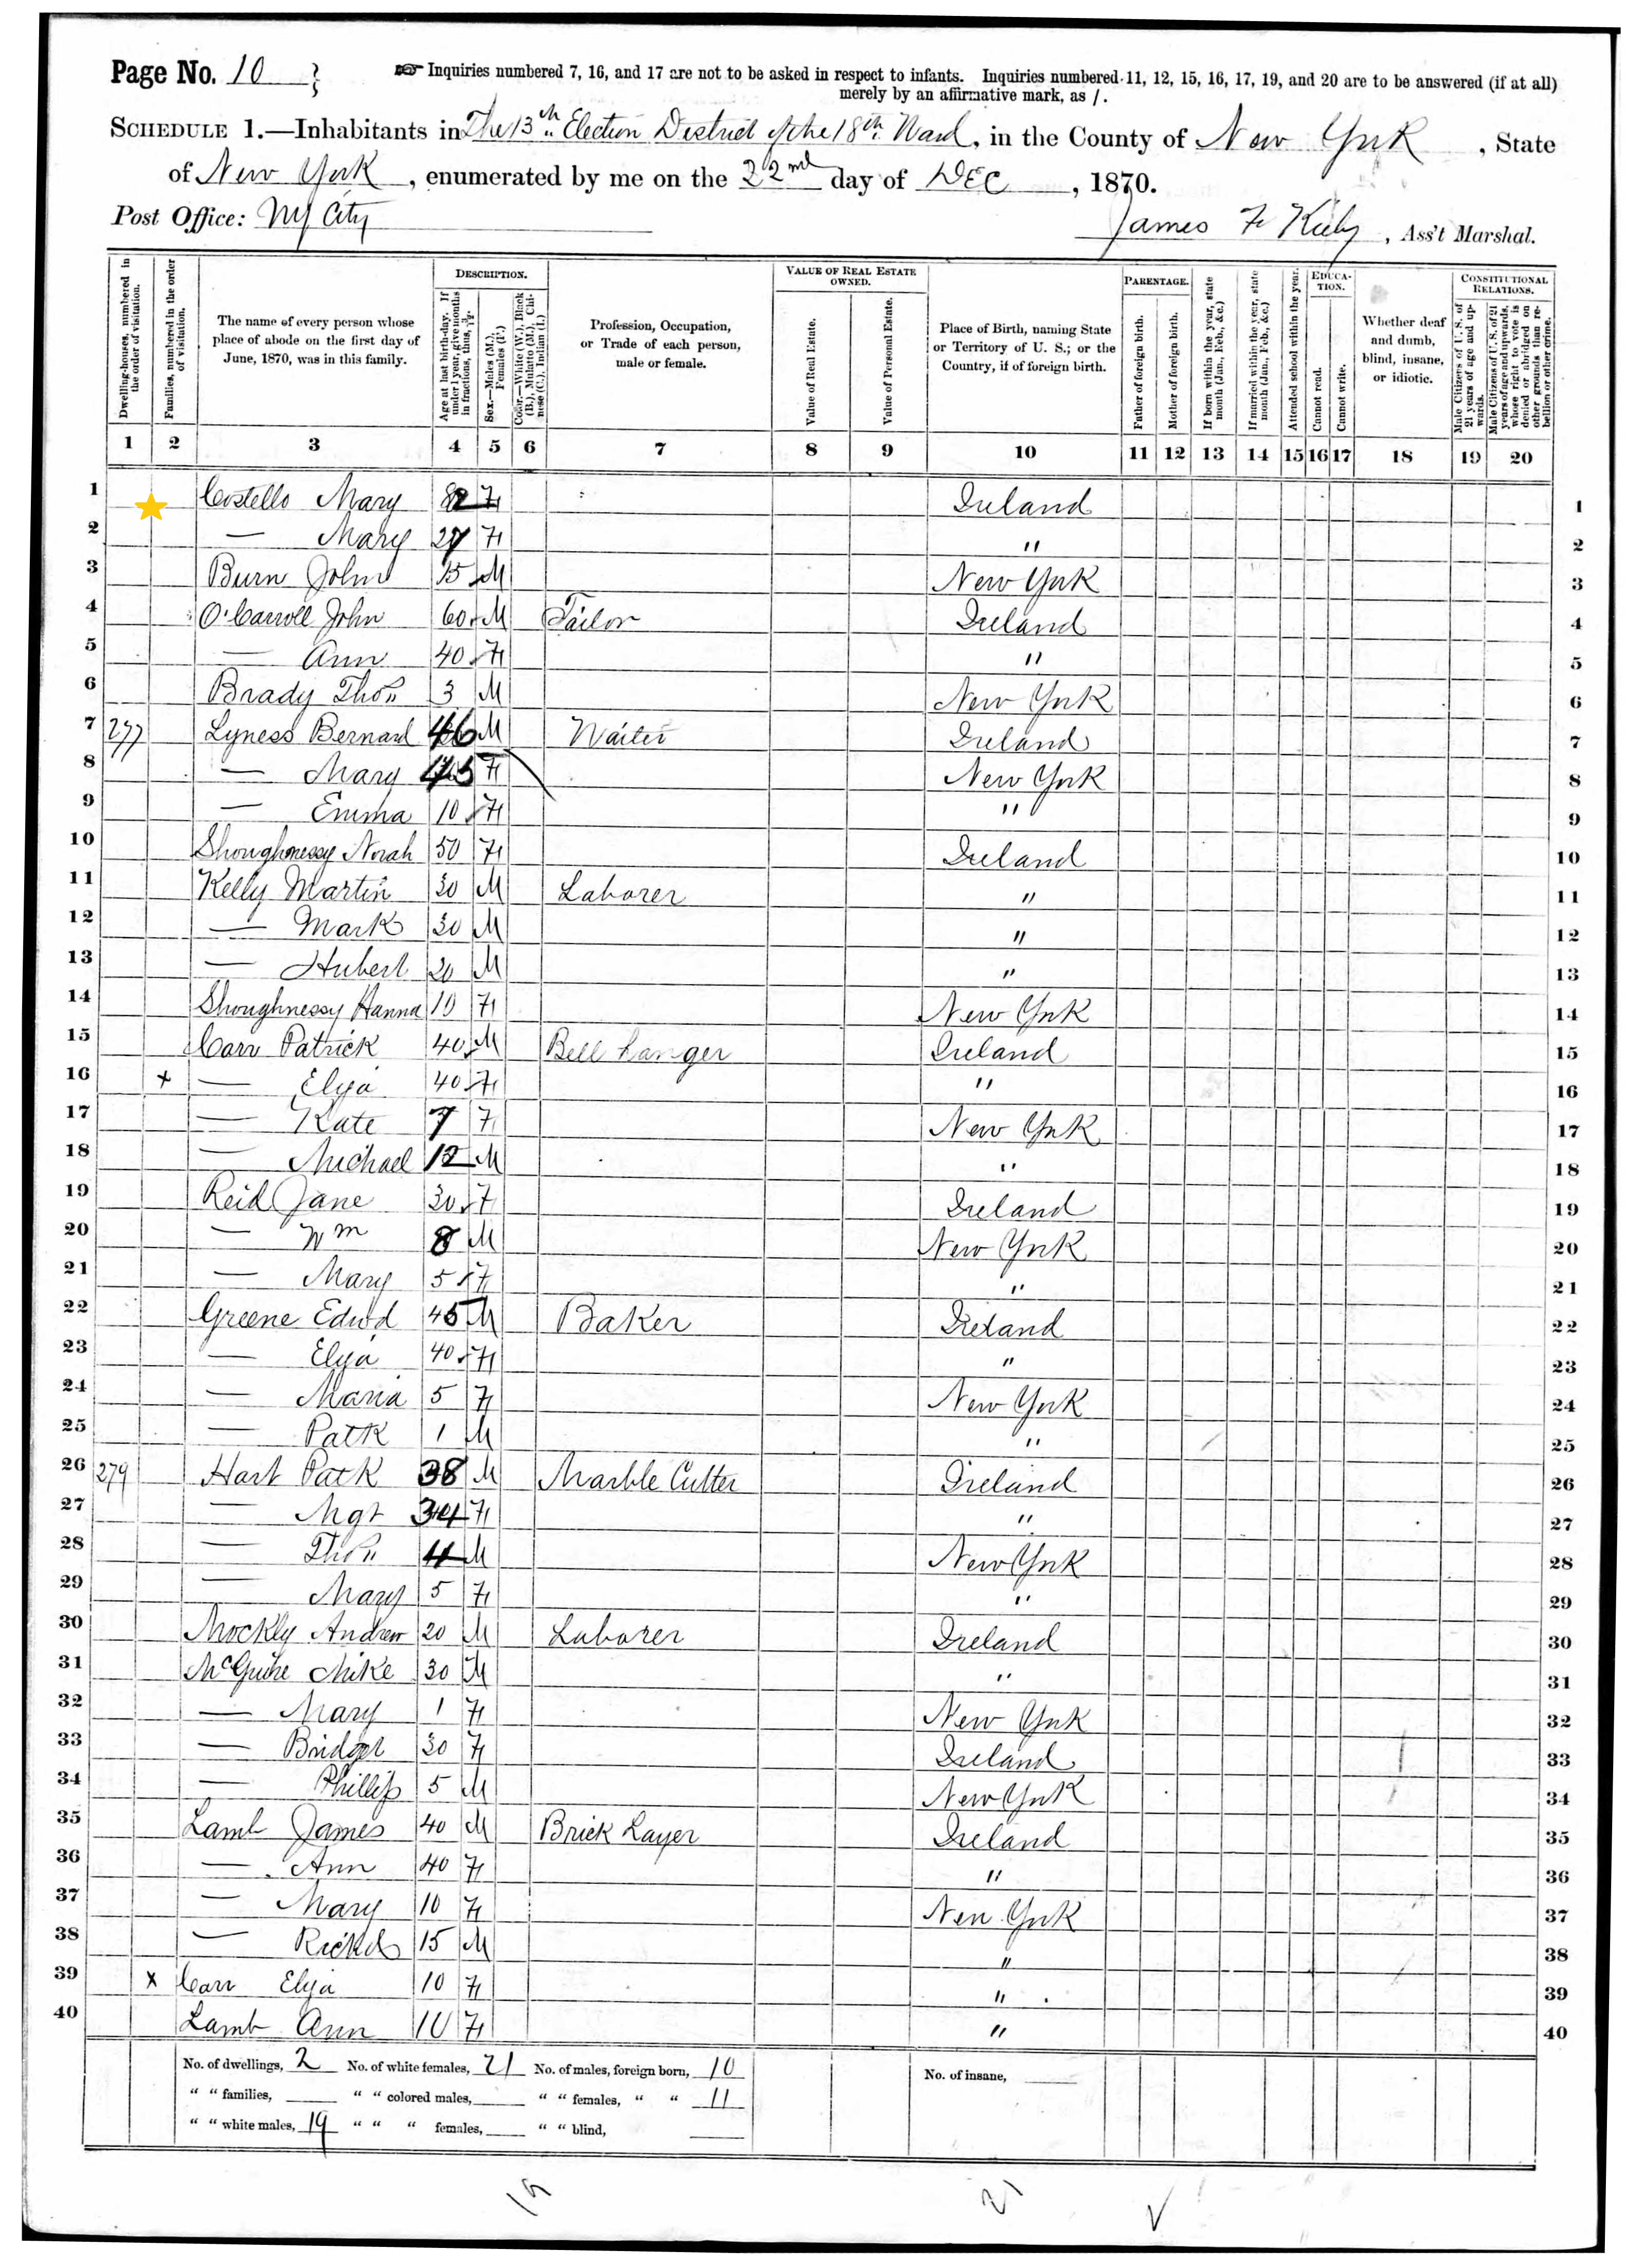 Page No. 10 }
☞ Inquiries numbered 7, 16, and 17 are not to be asked in respect to infants. Inquiries numbered 11, 12, 15, 16, 17, 19, and 20 are to be answered (if at all)
merely by an affirmative mark, as /.
SCHEDULE 1.—Inhabitants in The 13th Election District of the 18th Ward, in the County of New York, State
of New York, enumerated by me on the 22nd day of DEC, 1870.
Post Office: NY City
James F Kiely, Ass't Marshal.
Dwelling-houses, numbered in the order of visitation.
Families, numbered in the order of visitation.
The name of every person whose place of abode on the first day of June, 1870, was in this family.
DESCRIPTION.
Age at last birth-day. If under 1 year, give months in fractions, thus, 3/12.
Sex.—Males (M.), Females (F.)
Color.—White (W.), Black (B.), Mulatto (M.), Chinese (C.), Indian (I.)
Profession, Occupation, or Trade of each person, male or female.
VALUE OF REAL ESTATE OWNED.
Value of Real Estate.
Value of Personal Estate.
Place of Birth, naming State or Territory of U. S.; or the Country, if of foreign birth.
PARENTAGE.
Father of foreign birth.
Mother of foreign birth.
If born within the year, state month (Jan., Feb., &c.)
If married within the year, state month (Jan., Feb., &c.)
Attended school within the year.
EDUCATION.
Cannot read.
Cannot write.
Whether deaf and dumb, blind, insane, or idiotic.
CONSTITUTIONAL RELATIONS.
Male Citizens of U. S. of 21 years of age and upwards.
Male Citizens of U. S. of 21 years of age and upwards, whose right to vote is denied or abridged on other grounds than rebellion or other crime.
1 2 3 4 5 6 7 8 9 10 11 12 13 14 15 16 17 18 19 20
1 Costello Mary 82 F Ireland 1
2 — Mary 27 F " 2
3 Burn John 15 M New York 3
4 O'Carroll John 60 M Tailor Ireland 4
5 — Ann 40 F " 5
6 Brady Thos 3 M New York 6
7 277 Lyness Bernard 46 M Waiter Ireland 7
8 — Mary 45 F New York 8
9 — Emma 10 F " 9
10 Shoughnessy Norah 50 F Ireland 10
11 Kelly Martin 30 M Laborer " 11
12 — Mark 30 M " 12
13 — Hubert 20 M " 13
14 Shoughnessy Hanna 19 F New York 14
15 Carr Patrick 40 M Bell Hanger Ireland 15
16 x — Elija 40 F " 16
17 — Kate 7 F New York 17
18 — Michael 12 M " 18
19 Reid Jane 30 F Ireland 19
20 — Wm 8 M New York 20
21 — Mary 5 F " 21
22 Greene Edwd 45 M Baker Ireland 22
23 — Elija 40 F " 23
24 — Maria 5 F New York 24
25 — Patk 1 M " 25
26 279 Hart Patk 38 M Marble Cutter Ireland 26
27 — Mgt 34 F " 27
28 — Thos M New York 28
29 — Mary 5 F " 29
30 Mockly Andrew 20 M Laborer Ireland 30
31 McGuire Mike 30 M " 31
32 — Mary 1 F New York 32
33 — Bridget 30 F Ireland 33
34 — Phillip 5 M New York 34
35 Lamb James 40 M Brick Layer Ireland 35
36 — Ann 40 F " 36
37 — Mary 10 F New York 37
38 — Richd 15 M " 38
39 x Carr Elija 10 F " 39
40 Lamb Ann 10 F " 40
No. of dwellings, 2 No. of white females, 21 No. of males, foreign born, 10 No. of insane,
" " families, " " colored males, " " females, " " 11
" " white males, 19 " " " females, " " blind,
19 21 ✓